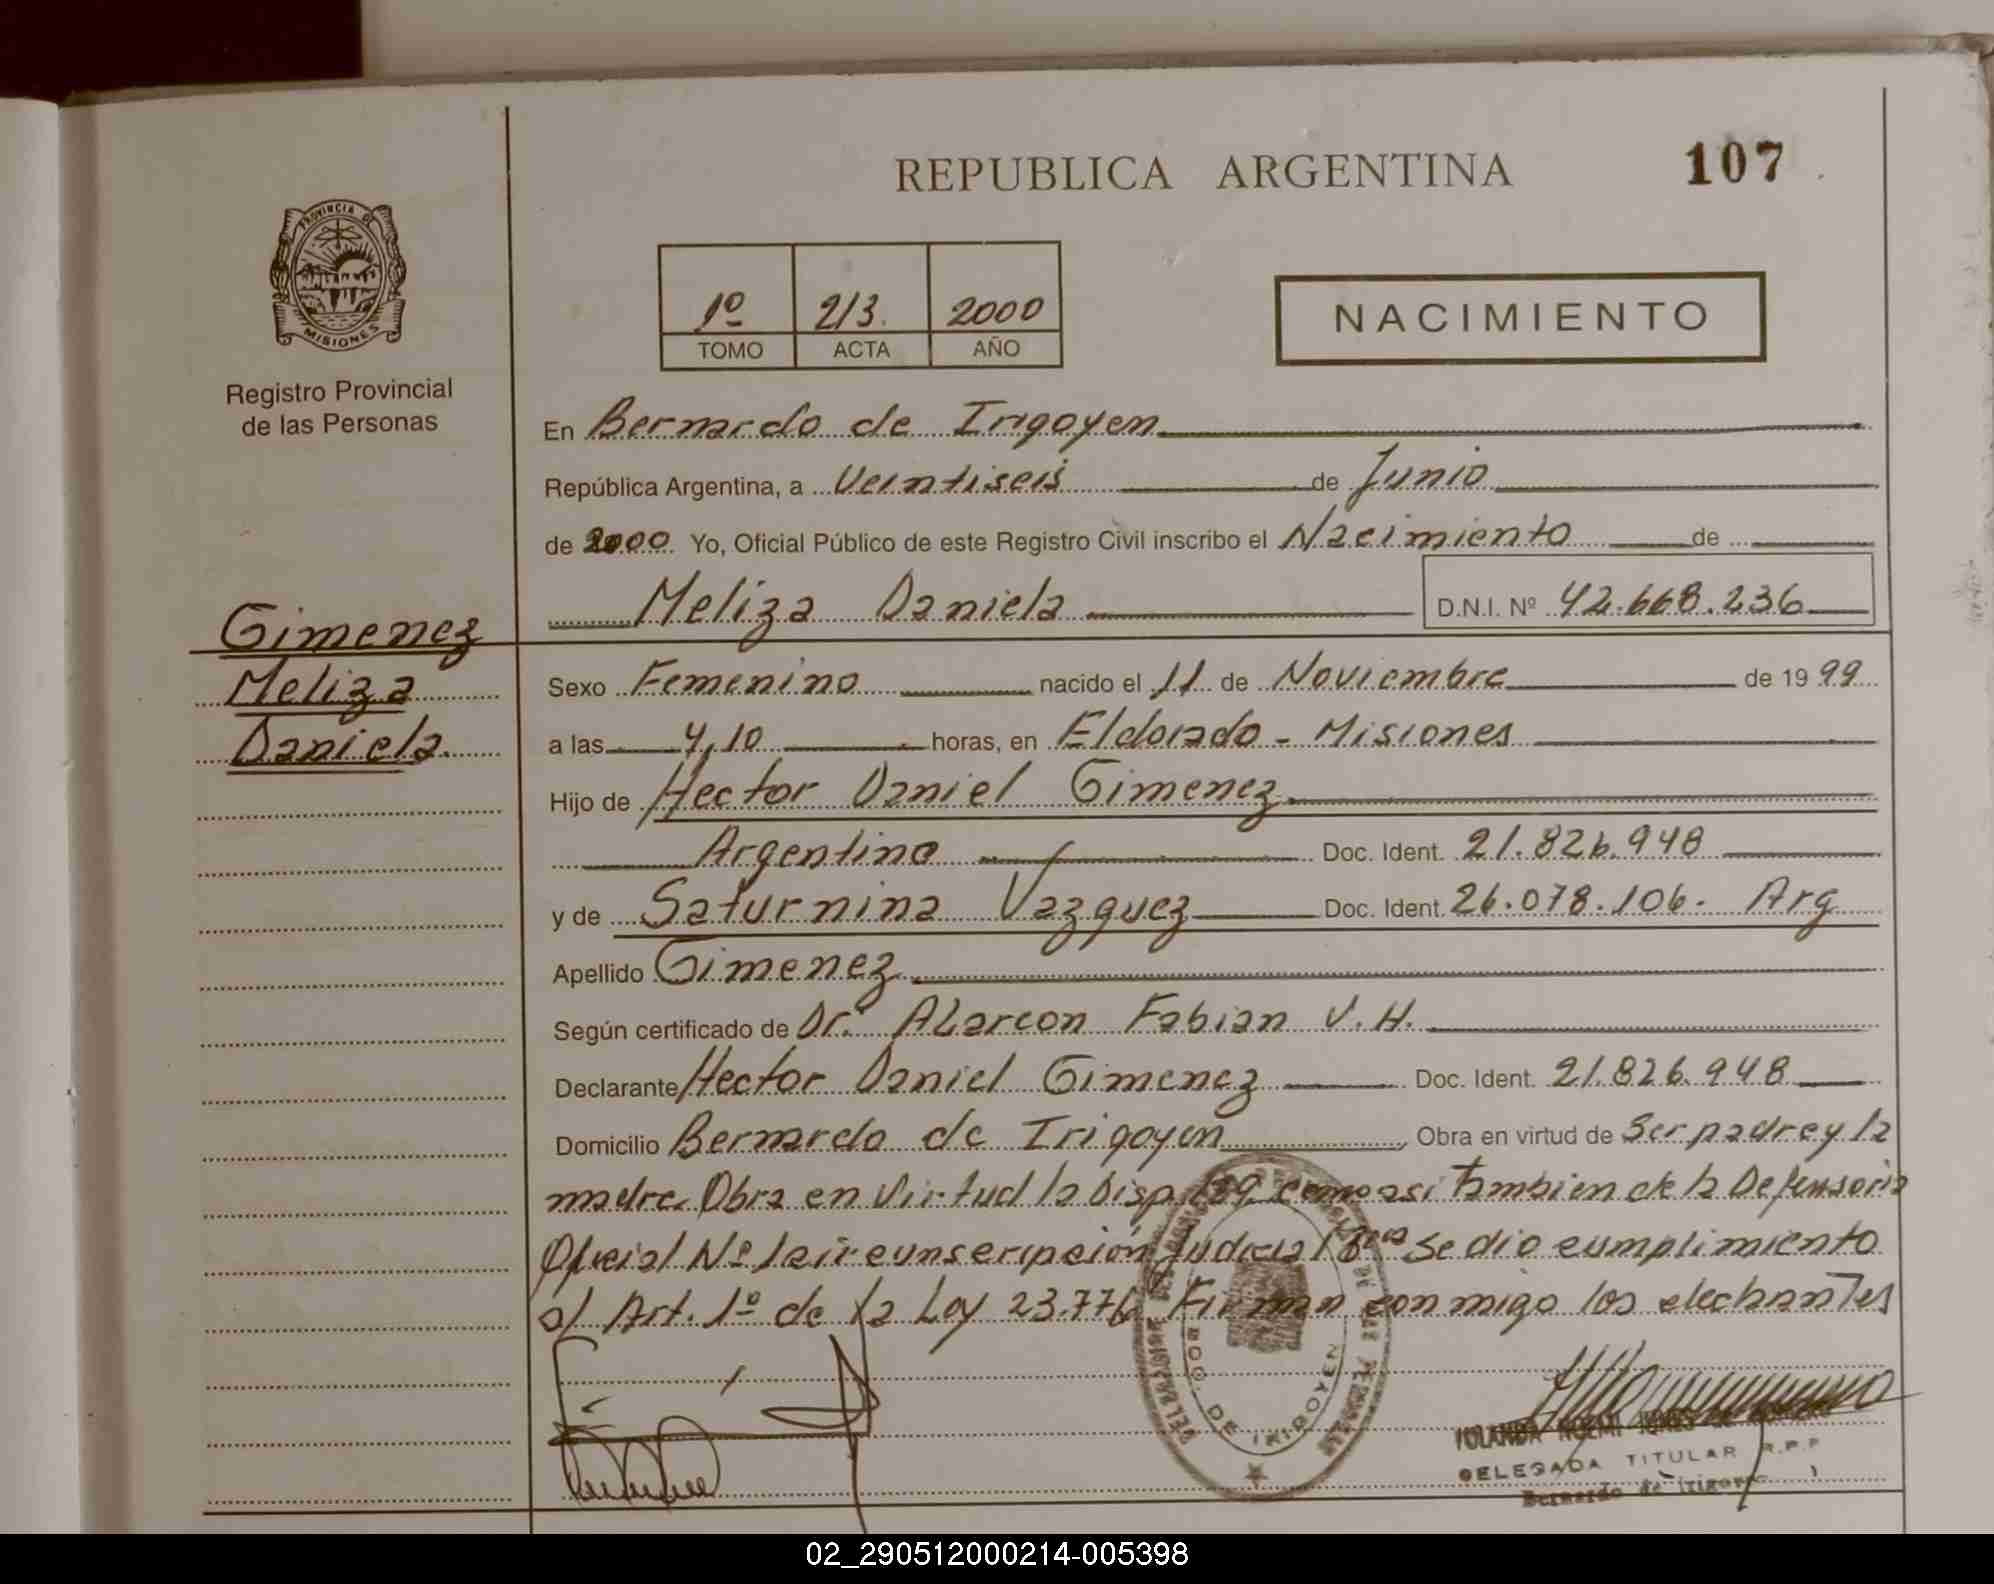 REPUBLICA ARGENTINA
107
PROVINCIA DE
MISIONES
Registro Provincial
de las Personas
1º 213. 2000
TOMO ACTA AÑO
NACIMIENTO
En Bernardo de Irigoyen
República Argentina, a Veintiseis de Junio
de 2000. Yo, Oficial Público de este Registro Civil inscribo el Nacimiento de
Meliza Daniela D.N.I. Nº 42.668.236
Gimenez
Meliza
Daniela.
Sexo Femenino nacido el 11 de Noviembre de 1999
a las 4,10 horas, en Eldorado - Misiones
Hijo de Hector Daniel Gimenez
Argentino Doc. Ident. 21.826.948
y de Saturnina Vazquez Doc. Ident. 26.078.106. Arg
Apellido Gimenez
Según certificado de Dr. Alarcon Fabian V.H.
Declarante Hector Daniel Gimenez Doc. Ident. 21.826.948
Domicilio Bernardo de Irigoyen, Obra en virtud de Ser padre y la
madre Obra en Virtud la Disp. como asi Tambien de la Defensoria
Oficial Nº 1 circunscripción Judicial Se dio cumplimiento
al Art. 1º de la Ley 23.776 Firman conmigo los
BDO. DE IRIGOYEN
YOLANDA NOEMI
DELEGADA TITULAR R.P.P
Bernardo de Irigoyen
02_290512000214-005398